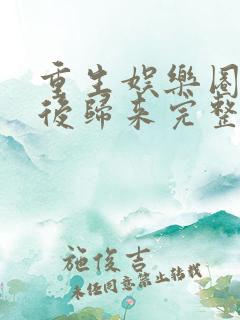 重生娛樂圈
後歸來完整
施俊吉
未经同意禁止转载